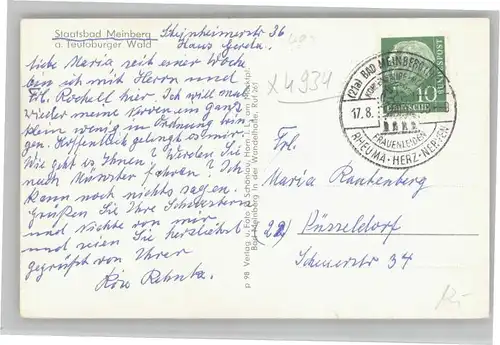 Staatsbad Meinberg
a. Teutoburger Wald
Steinheimerstr 36
Haus Gerda.
Liebe Maria seit einer Woche
bin ich mit Herrn und
Frl. Rochell hier. Ich will mal
wieder meine Nerven ein ganz
klein wenig in Ordnung brin
gen. Hoffentlich gelingt es mir.
Wie geht es Ihnen? Werden Sie
nach Münster fahren? Ich
kann noch nichts sagen.
Grüßen Sie Ihre Schwestern
und Nichte von mir
und seien Sie herzlichst
gegrüßt von Ihrer
p 98 Verlag u. Foto A. Schönlau, Horn i. L., am Marktpl.
Bad Meinberg in der Wandelhalle, Ruf 361
X 4934
(21a) BAD MEINBERG
17.8.
FRAUENLEIDEN
RHEUMA-HERZ-NERVEN
DEUTSCHE
BUNDESPOST
10
Frl.
Maria Rautenberg
22) Düsseldorf
Str 34